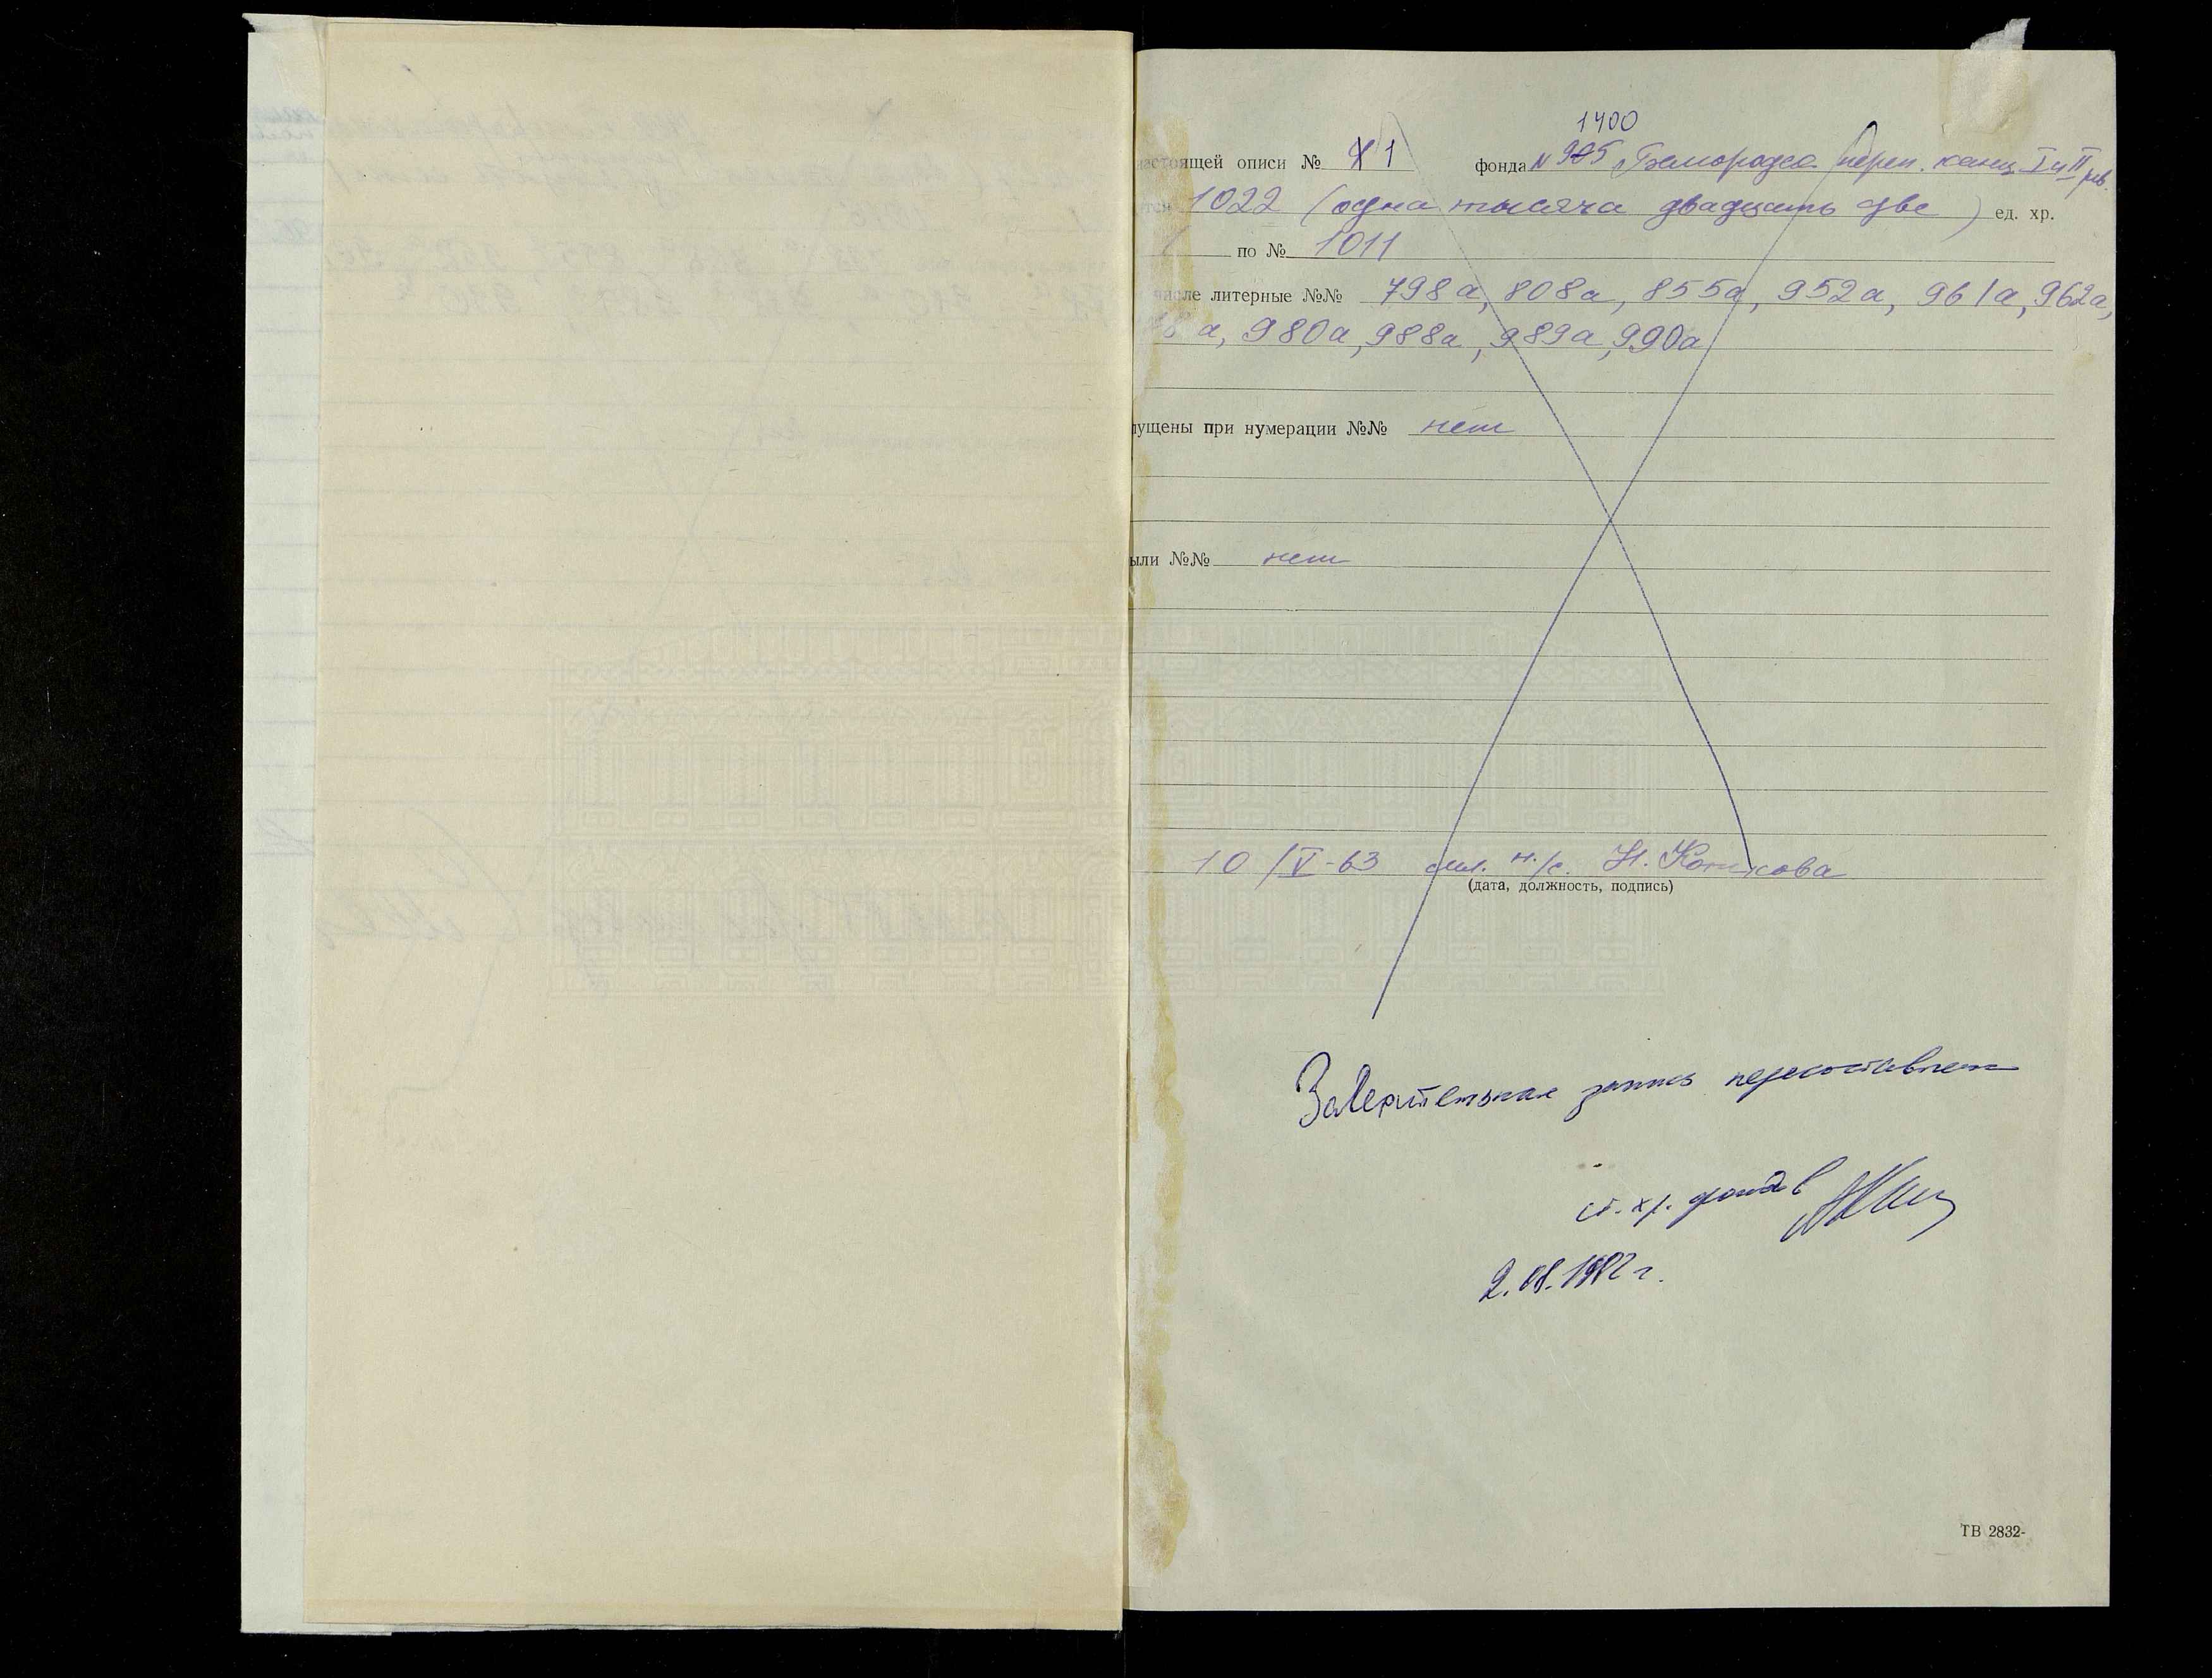 1400
настоящей описи № 1 фонда N 905 Белгородск. переп. канц. I и II рев.
1022 (одна тысяча двадцать две) ед. хр.
по № 1011
числе литерные №№ 798а, 808а, 855а, 952а, 961а, 962а,
а, 980а, 988а, 989а, 990а
пущены при нумерации №№ нет
ыли №№ нет
10/V-63 мл. н./с. Н.
(дата, должность, подпись)
Заверительная запись пересоставлена
ст. хр. фондов
2.08.1982 г.
ТВ 2832-